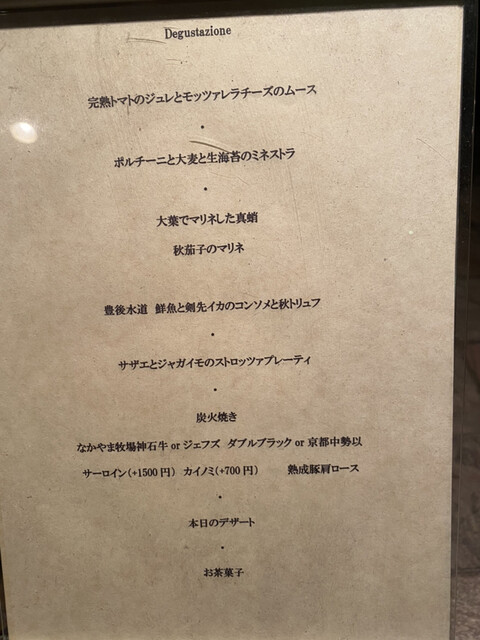 Degustazione
完熟トマトのジュレとモッツァレラチーズのムース
・
ポルチーニと大麦と生海苔のミネストラ
・
大葉でマリネした真蛸
秋茄子のマリネ
・
豊後水道 鮮魚と剣先イカのコンソメと秋トリュフ
・
サザエとジャガイモのストロッツァプレーティ
・
炭火焼き
なかやま牧場神石牛 or ジェフズ ダブルブラック or 京都中勢以
サーロイン(+1500円) カイノミ(+700円) 熟成豚肩ロース
・
本日のデザート
・
お茶菓子